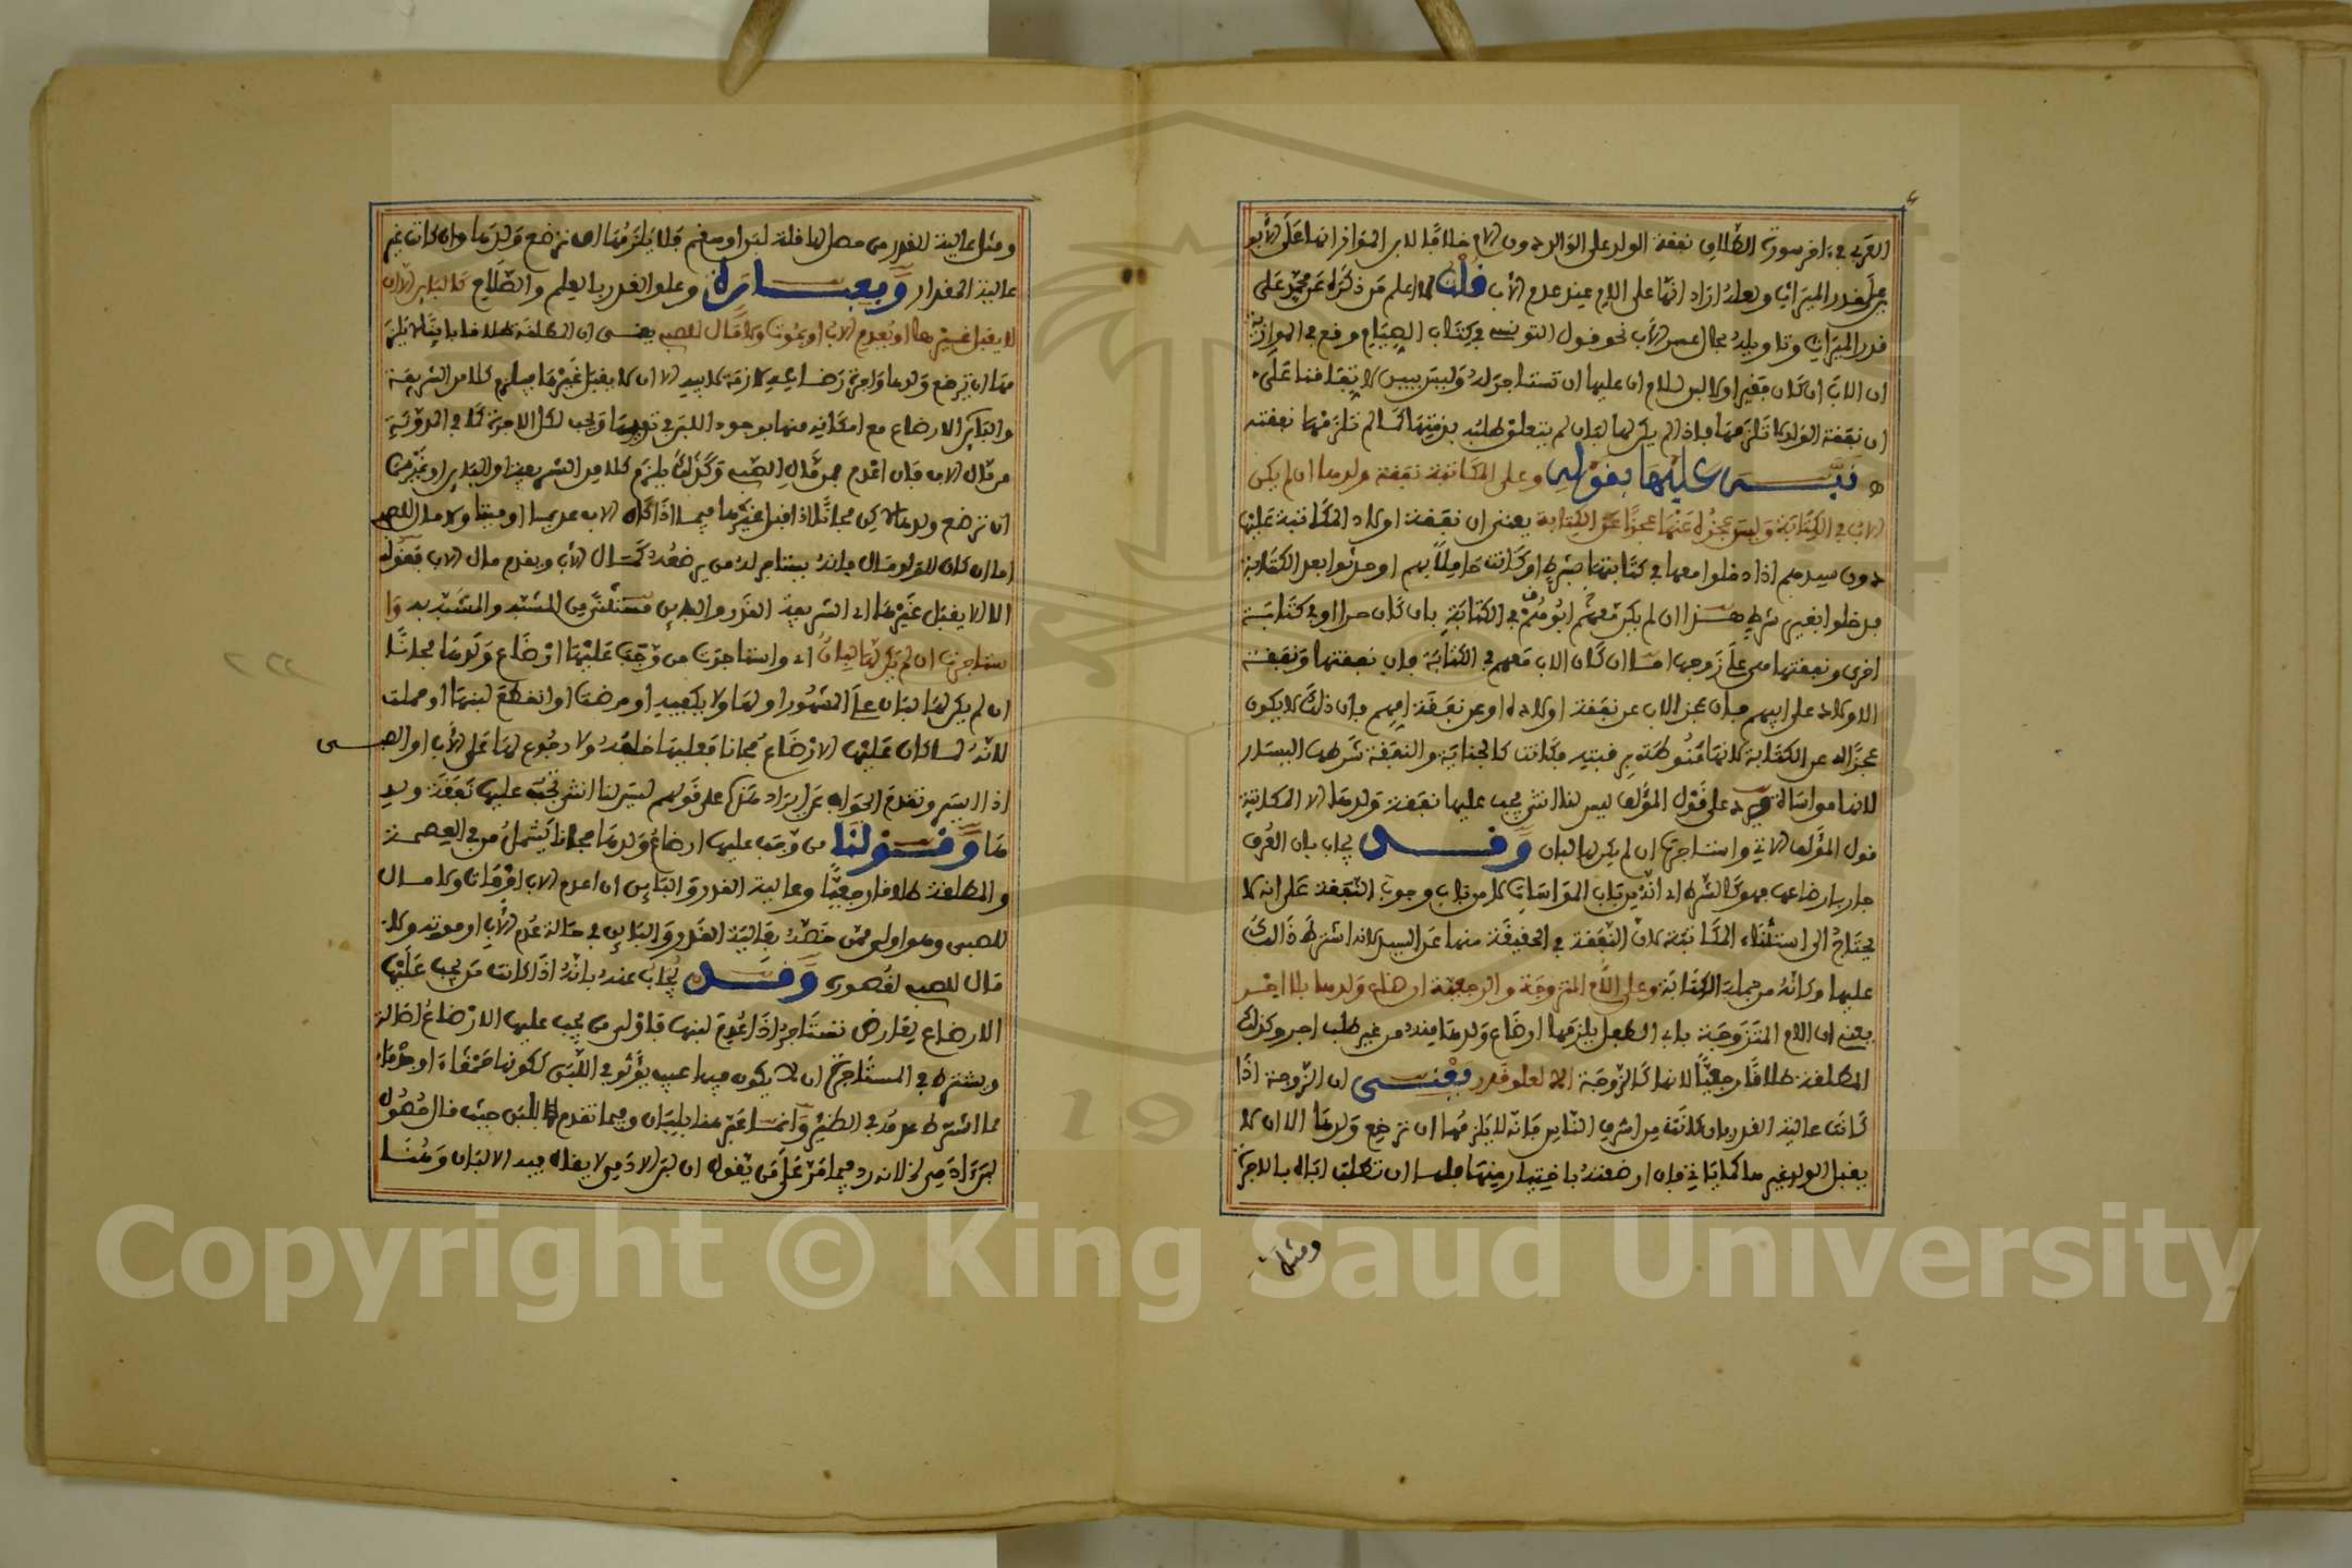 العربي في اخر سورة الطلاق نفقة الولد على الوالد دون الام خلافا لابن المواز انها على الأبو
ين على قدر الميراث ولعله اراد انها على الام عند عدم الأب قلت لا اعلم من ذكره عن محمد على
قدر الميراث وتاويله بحال عسر الأب نحو قول التونسي في كتاب الصيام وقع في الموازية
ان الاب ان كان فقيرا ولا لبن للام ان عليها ان تستاجر له وليس ببين لاتفاقنا على
ان نفقة الولد لا تلزمها فاذا لم يكن لها لبان لم يتعلق طلبه بذمتها كما لم تلزمها نفقته
ه عليها بقوله وعلى المكاتبة نفقة ولدها ان لم يكن
الاب في الكتابة وليس عجزه عنها عجزا عن الكتابة يعني ان نفقة اولاد المكاتبة عليها
دون سيدهم اذا دخلوا معها في كتابتها بشرط او كانت حاملا بهم او حدثوا بعد الكتابة
فدخلوا بغير شرط هذا ان لم يكن معهم ابوهم في الكتابة بان كان حرا او في كتابة
اخرى ونفقتها هي على زوجها اما ان كان الاب معهم في الكتابة فان نفقتها ونفقة
الاولاد على ابيهم فان عجز الاب عن نفقة اولاده او عن نفقة امهم فان ذلك لا يكون
عجزا له عن الكتابة لانها منوطة برقبته فكانت كالجناية والنفقة شرطها اليسار
لانها مواساة على قول المؤلف ليس لنا انثى يجب عليها نفقة ولدها الا المكاتبة
قول المؤلف الاتي واستاجرت ان لم يكن لها لبان وقد يجاب بان العرف
جار بارضاعها فهو كالشرط اي انه من باب المواسات لا من باب وجوب النفقة على انه لا
يحتاج الى استثناء المكاتبة لان النفقة في الحقيقة منها عن السيد لانه اشترط ذالك
عليها وكانه من جملة الكتابة وعلى الام المتزوجة والرجعية ارضاع ولدها بلا اجر
يعني ان الام المتزوجة باب الطفل يلزمها ارضاع ولدها منه من غير طلب اجر وكذلك
المطلقة طلاقا رجعيا لانها كالزوجة الا لعلو قدر يعني ان الزوجة اذا
كانت عالية القدر بان كانت من اشرف الناس فانه لا يلزمها ان ترضع ولدها الا ان لا
يقبل الولد غيرها كما ياتي فان ارضعته باختيار منها فلها ان تطلب اباه بالاجرة
ومثل
ومثل عالية القدر من حصل لها قلة لبن او سقم فلا يلزمها ان ترضع ولدها وان كانت غير
عالية المقدار وعلو القدر بالعلم والصلاح كالبائن الا ان
لا يقبل غيرها او يعدم الاب او يموت ولا مال للصبي يعني ان المطلقة طلاقا باينا لا يلز
مها ان ترضع ولدها واجرة رضاعه لازمة لابيه الا ان لا يقبل غيرها فيلزم كلا من الشريفة
والبائن الارضاع مع امكانه منها بوجود اللبن في ثديها ويجب لكل الاجرة كما في المدونة
من مال الاب فان اعدم فمن مال الصبي وكذلك يلزم كلا من الشريفة والبائن او غيرهما
ان ترضع ولدها لاكن مجانا اذا قبل غيرها فيما اذا كان الاب عديما او ميتا ولا مال للصبي
اما ان كان للولد مال فانه يستاجر له من يرضعه كمال الأب ويقدم مال الاب فقوله
الا ان لا يقبل غيرها اي الشريفة القدر والبائن مستثنى من المشبه والمشبه به وا
ستاجرت ان لم يكن لها لبان اي واستاجرت من وجب عليها ارضاع ولدها مجانا
ان لم يكن لها لبان على المشهور او لها ولا يكفيه او مرضت او انقطع لبنها او حملت
لانه لما كان عليها الارضاع مجانا فعليها خلفه ولا رجوع لها على الأب او الصبي
اذا ايسر وتقدم الجواب عن ايراد مثل على قولهم ليس لنا انثى تجب عليها نفقة ولد
ها وقولنا من وجب عليها ارضاع ولدها مجانا يشمل من في العصمة
والمطلقة طلاقا رجعيا وعالية القدر والبائن ان اعدم الاب او مات ولا مال
للصبي وهو اولى ممن خصه بعالية القدر والبائن في حالة عدم الأب او موته ولا
مال للصبي لقصوره وقد يجاب عنه بانه اذا كانت من يجب عليها
الارضاع بعارض تستاجر اذا عدم لبنها فاولى من يجب عليها الارضاع اصالة
ويشترط في المستاجرة ان لا يكون فيها عيب يؤثر في اللبن لكونها حمقاء او جذماء
مما اشترط عدمه في الظئر وانما عبر هنا بلبان وفيما تقدم باللبن حيث قال حصول
لبن ادمي لانه رد فيما مر على من يقول ان لبن الادمي لا يقال فيه الا لبان وهنا